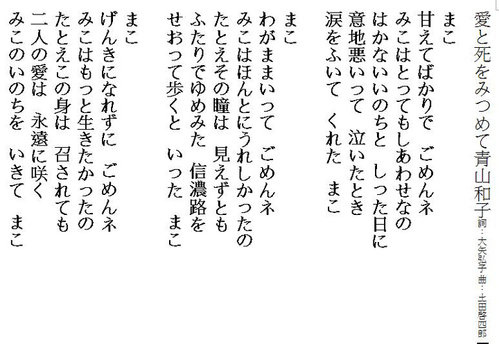 愛と死をみつめて 青山和子 詞:大矢弘子 曲:土田啓四郎
まこ
甘えてばかりで ごめんネ
みこはとってもしあわせなの
はかないいのちと しった日に
意地悪いって 泣いたとき
涙をふいて くれた まこ
まこ
わがままいって ごめんネ
みこはほんとにうれしかったの
たとえその瞳は 見えずとも
ふたりでゆめみた 信濃路を
せおって歩くと いった まこ
まこ
げんきになれずに ごめんネ
みこはもっと生きたかったの
たとえこの身は 召されても
二人の愛は 永遠に咲く
みこのいのちを いきて まこ